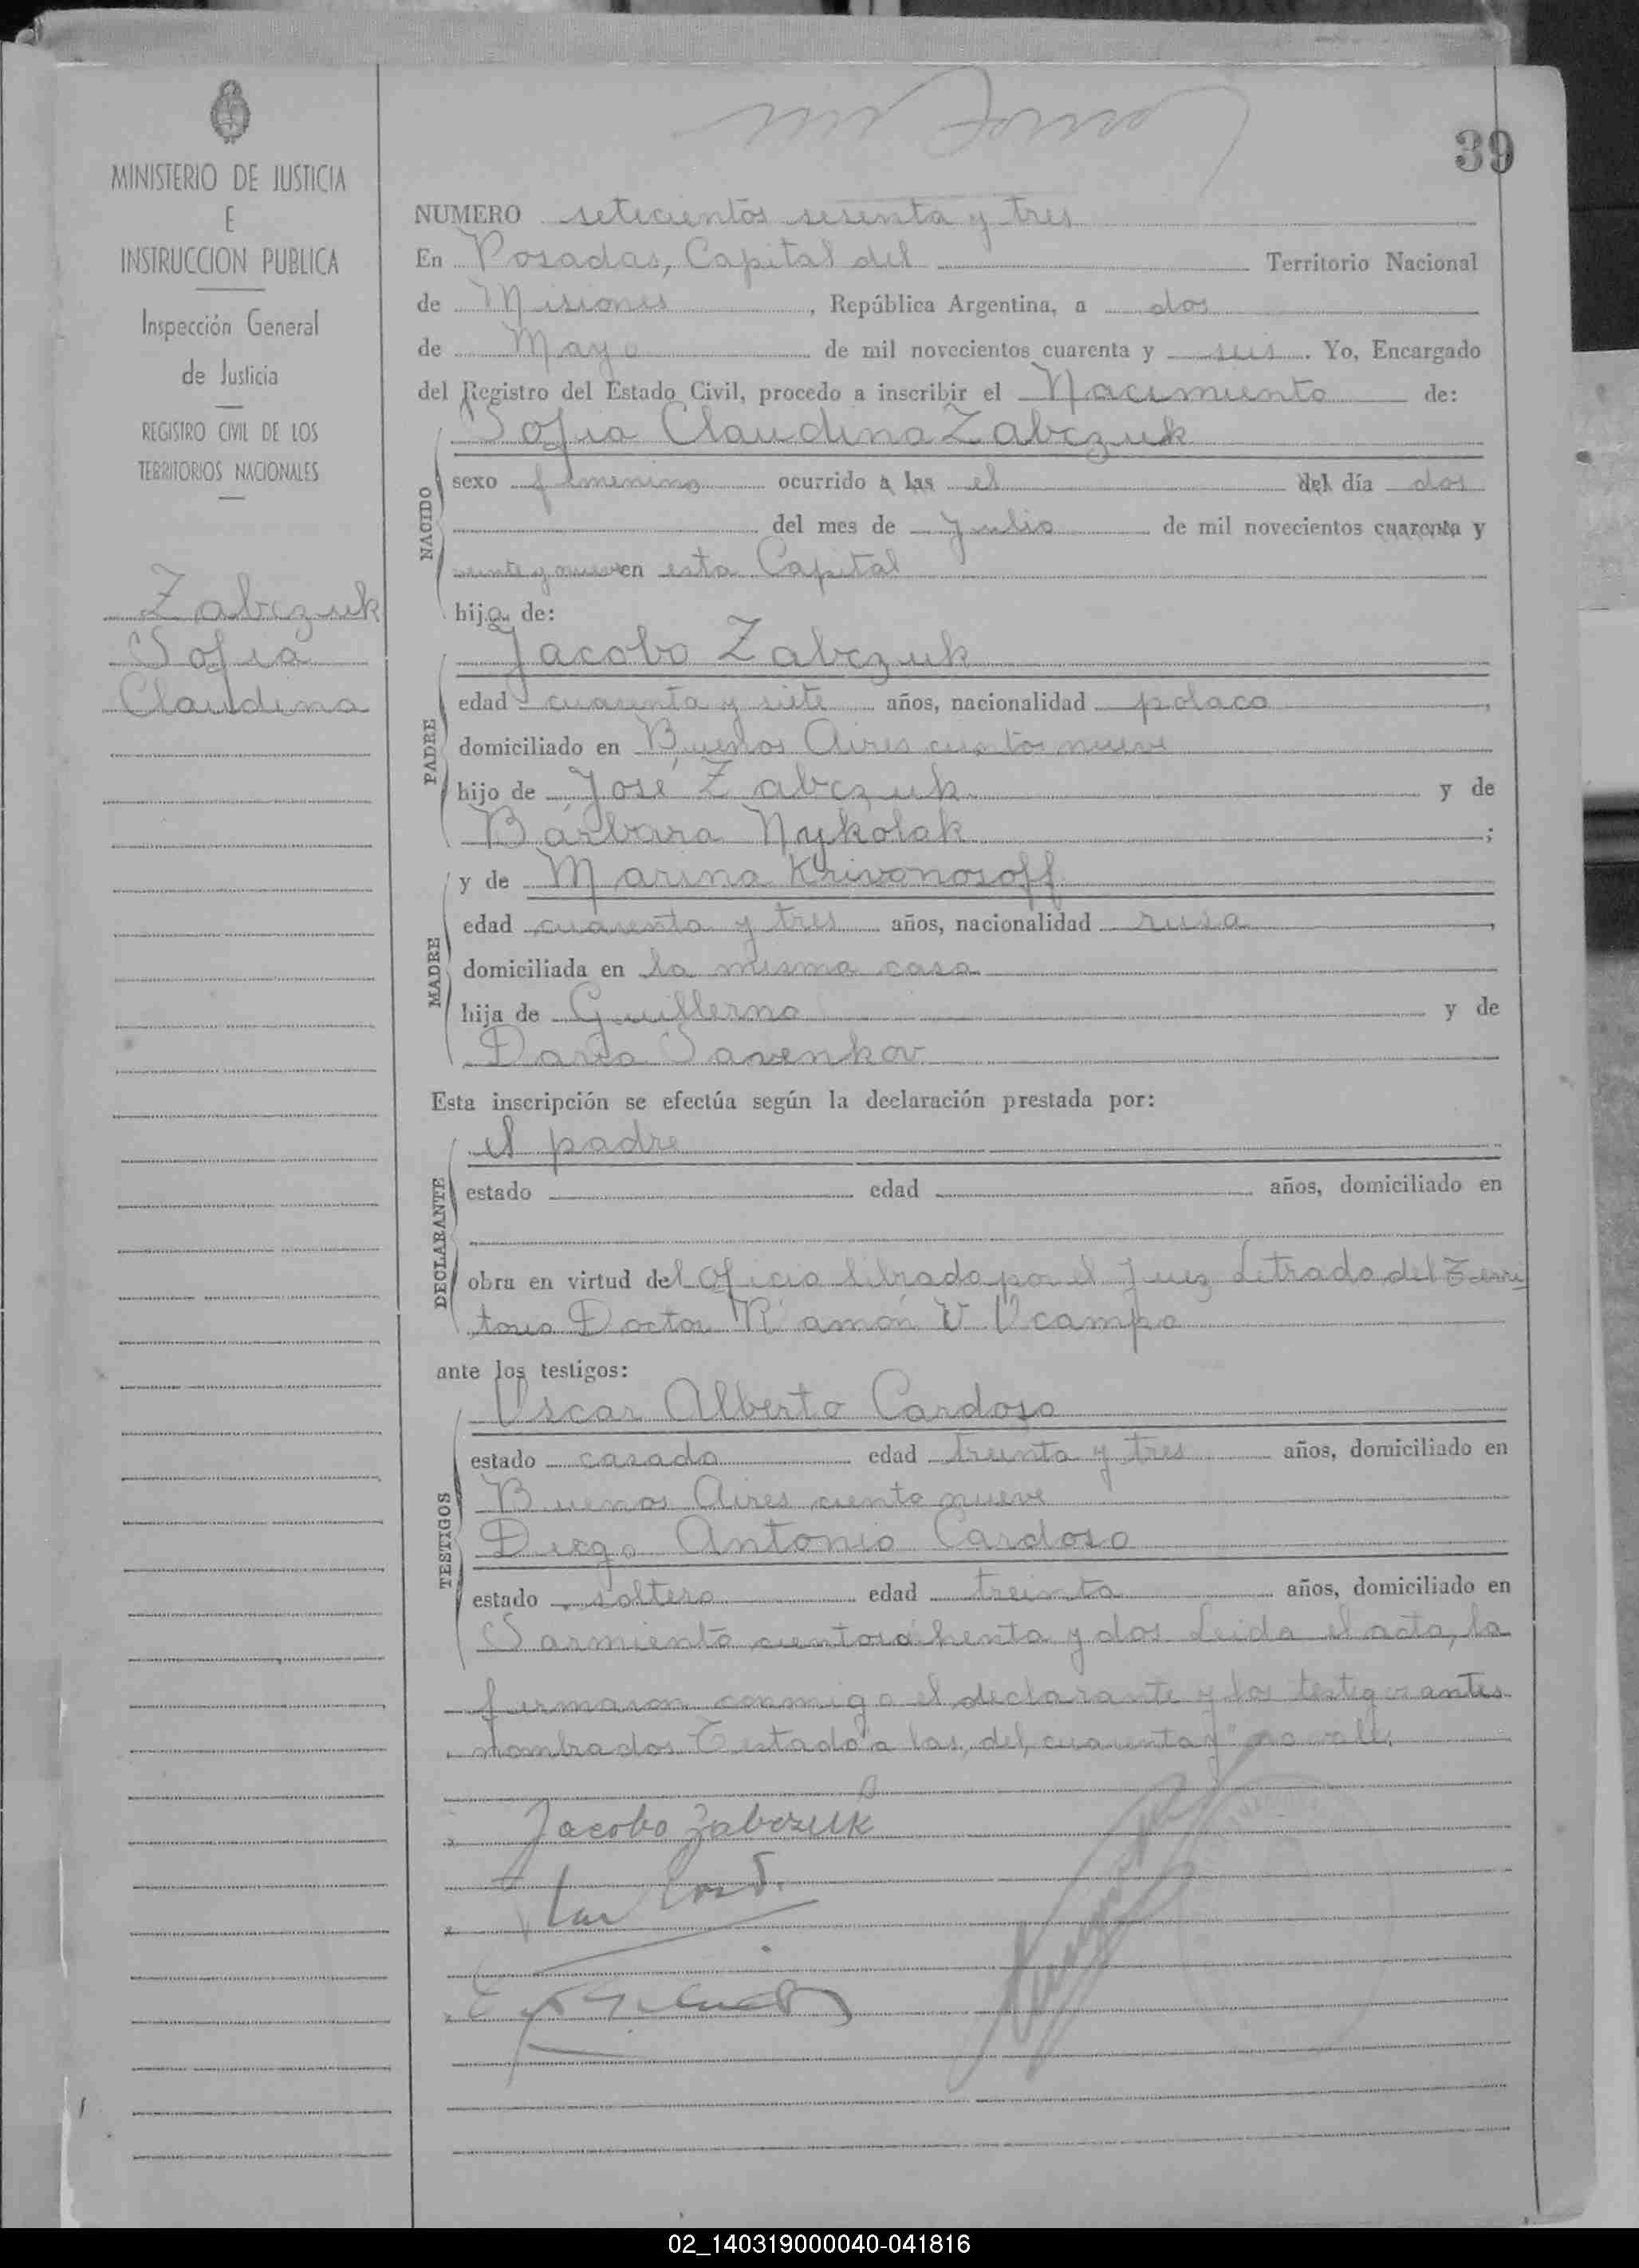 39
MINISTERIO DE JUSTICIA
E
INSTRUCCION PUBLICA
Inspección General
de Justicia
REGISTRO CIVIL DE LOS
TERRITORIOS NACIONALES
Zabczuk
Sofia
Claudina
NUMERO setecientos sesenta y tres
En Posadas, Capital del Territorio Nacional
de Misiones, República Argentina, a dos
de Mayo de mil novecientos cuarenta y seis. Yo, Encargado
del Registro del Estado Civil, procedo a inscribir el Nacimiento de:
NACIDO
Sofia Claudina Zabczuk
sexo femenino ocurrido a las el del día dos
del mes de Julio de mil novecientos cuarenta y
veinte y nueve en esta Capital
hija de:
PADRE
Jacobo Zabczuk
edad cuarenta y siete años, nacionalidad polaco,
domiciliado en Buenos Aires ciento nueve
hijo de José Zabczuk y de
Bárbara Nykolak;
MADRE
y de Marina Krivonosoff
edad cuarenta y tres años, nacionalidad rusa,
domiciliada en la misma casa
hija de Guillermo y de
Daria Savenkov
Esta inscripción se efectúa según la declaración prestada por:
DECLARANTE
el padre
estado edad años, domiciliado en
obra en virtud del Oficio librado por el Juez Letrado del Terri
torio Doctor Ramón V Ocampo
ante los testigos:
TESTIGOS
Oscar Alberto Cardoso
estado casado edad treinta y tres años, domiciliado en
Buenos Aires ciento nueve
Diego Antonio Cardoso
estado soltero edad treinta años, domiciliado en
Sarmiento ciento ochenta y dos Leida el acta, la
firmaron conmigo el declarante y los testigos antes
nombrados Testado "a las, del, cuarenta y" no vale.
Jacobo Zabczuk
02_140319000040-041816